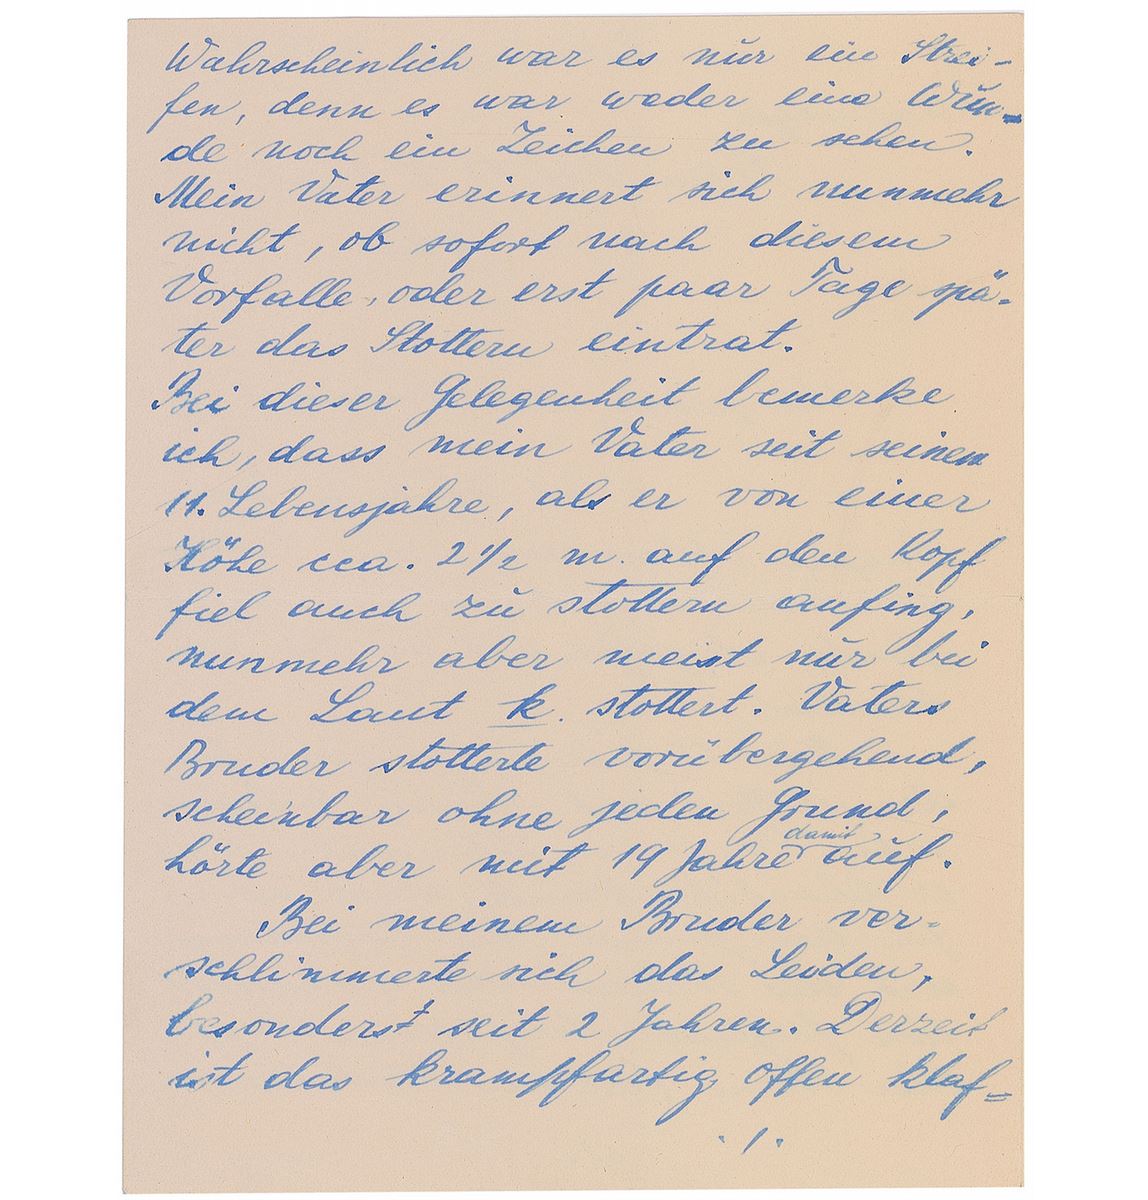 Wahrscheinlich war es nur ein Strei-
fen, denn es war weder eine Wun-
de noch ein Zeichen zu sehen.
Mein Vater erinnert sich nunmehr
nicht, ob sofort nach diesem
Vorfalle, oder erst paar Tage spä-
ter das Stottern eintrat.
Bei dieser Gelegenheit bemerke
ich, dass mein Vater seit seinem
11. Lebensjahre, als er von einer
Höhe cca. 2 1/2 m. auf den Kopf
fiel auch zu stottern anfing,
nunmehr aber meist nur bei
dem Laut k. stottert. Vaters
Bruder stotterte vorübergehend,
scheinbar ohne jeden Grund,
hörte aber mit 19 Jahre damit auf.
Bei meinem Bruder ver-
schlimmerte sich das Leiden,
besonders seit 2 Jahren. Derzeit
ist das krampfartig offen klaf-
./.